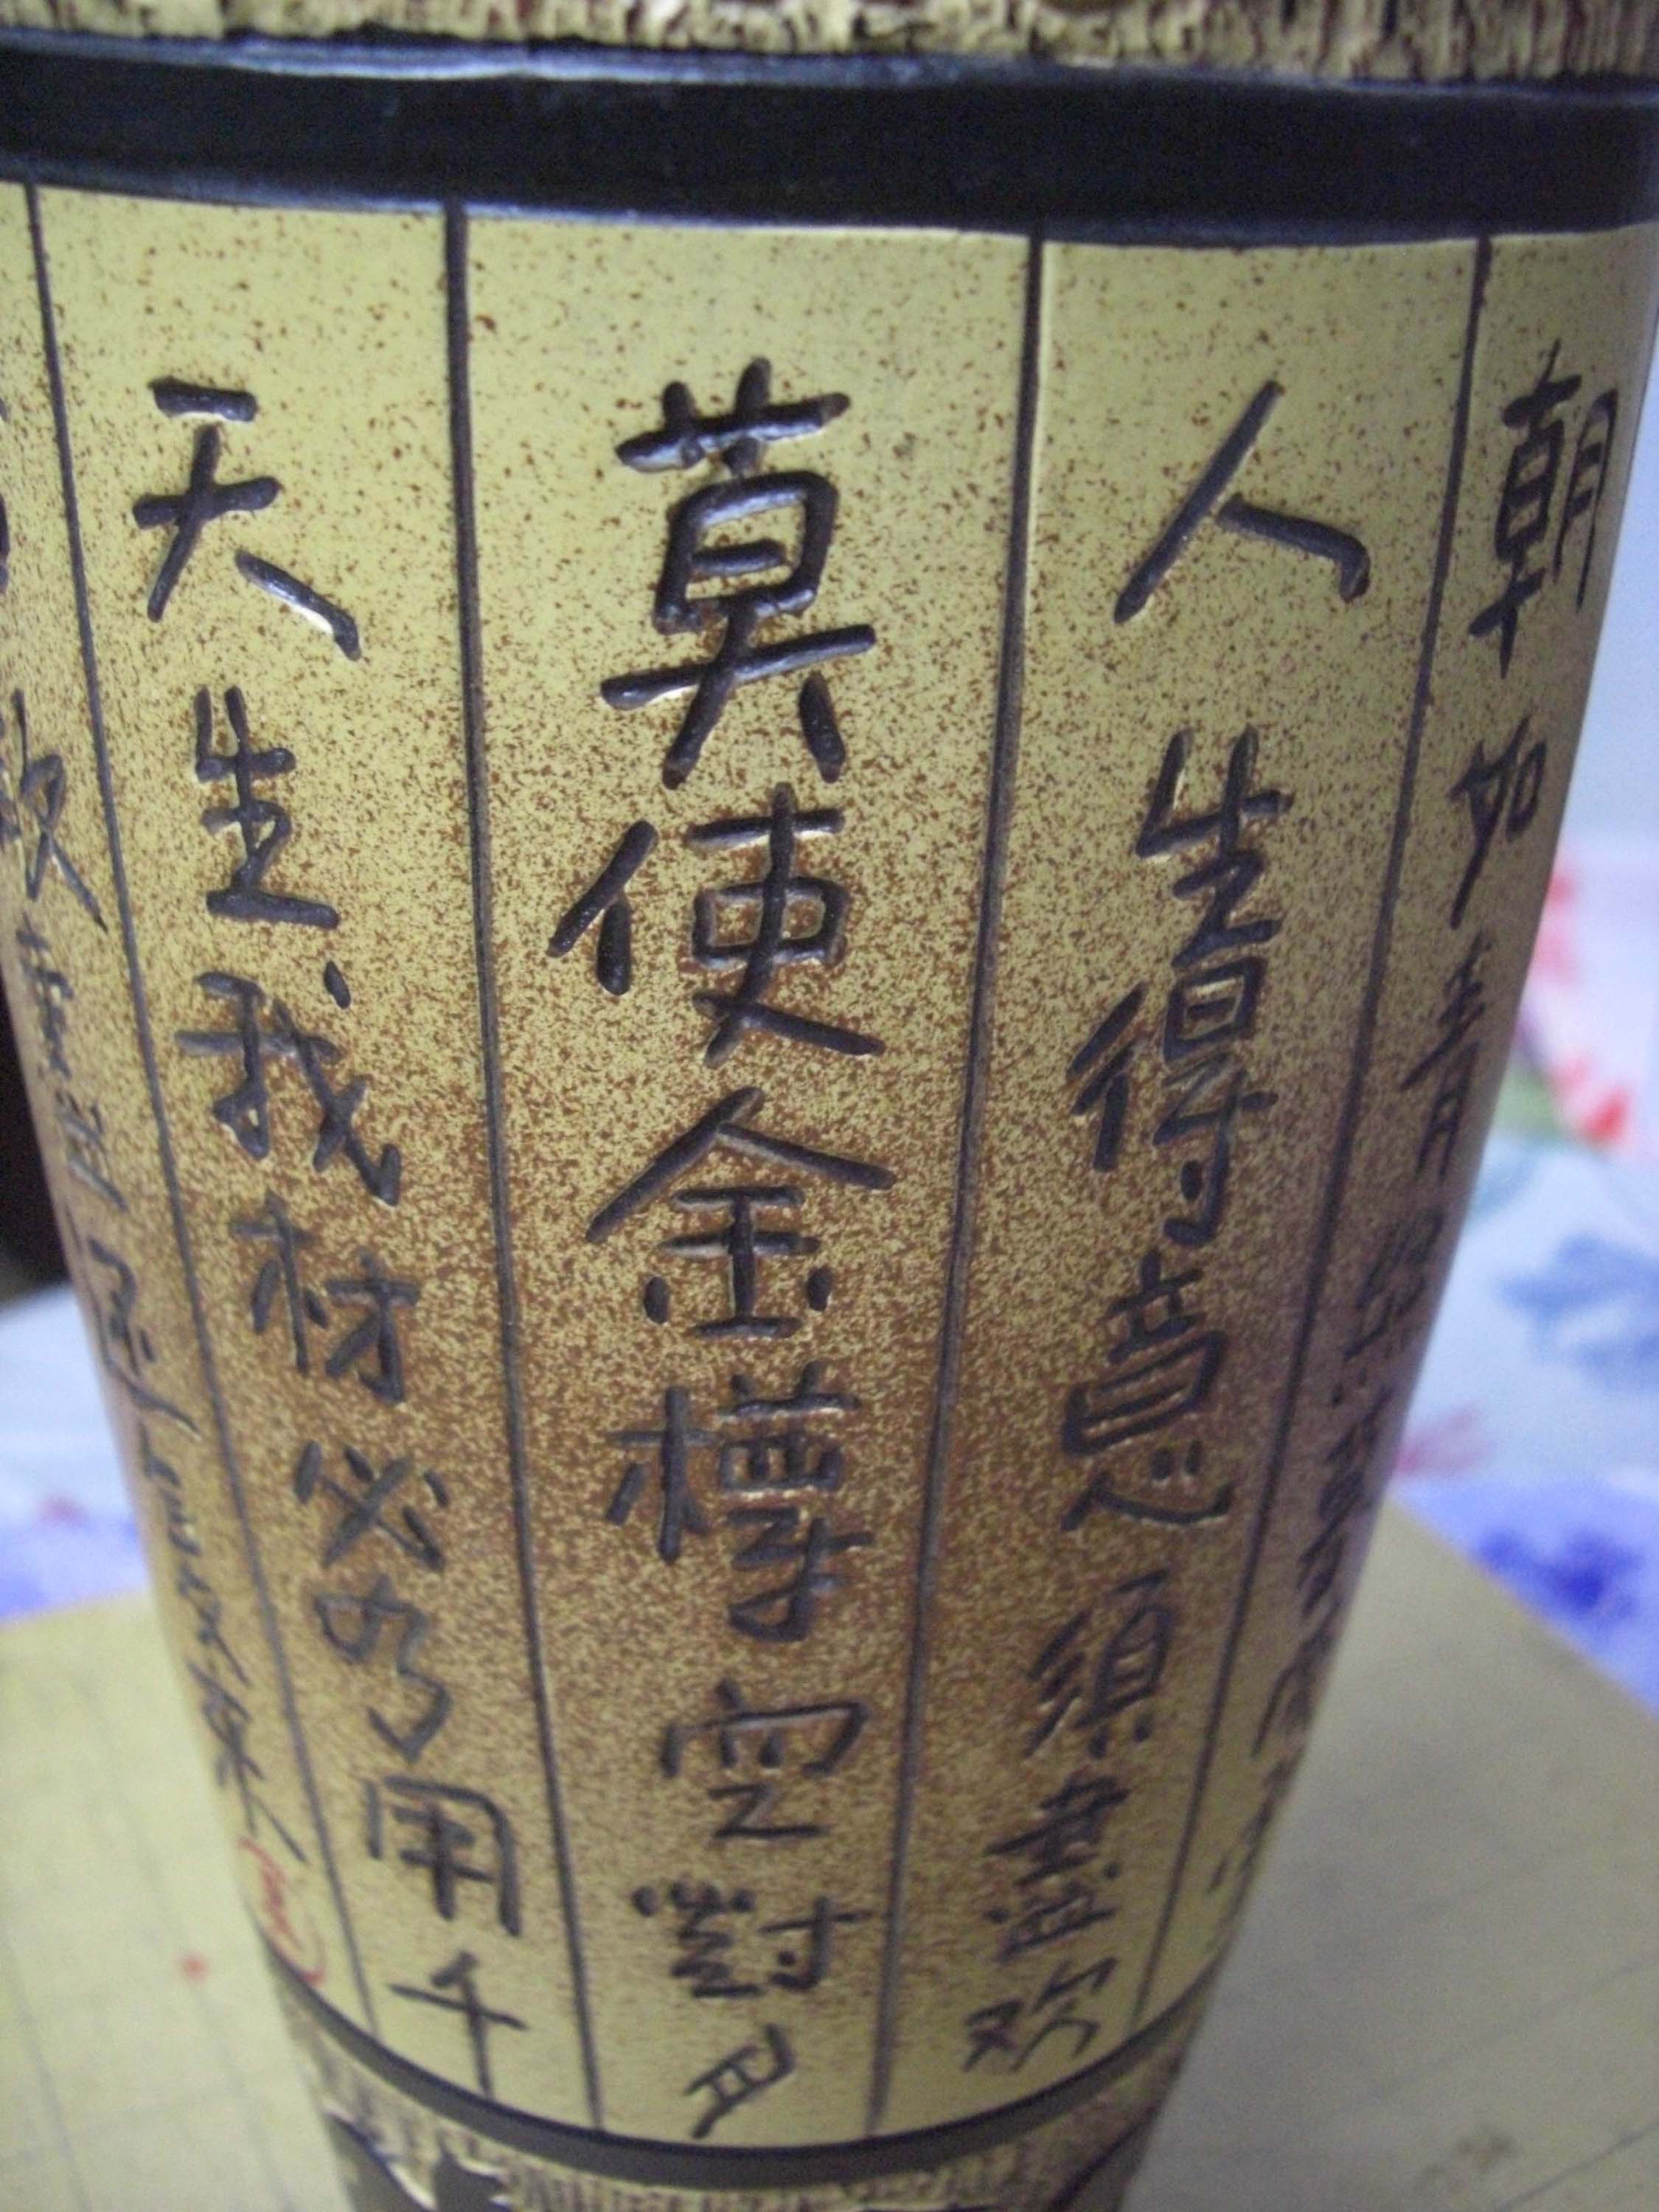 朝如青
人生得意須盡欢
莫使金樽空對月
天生我材必有用千
散盡還復來